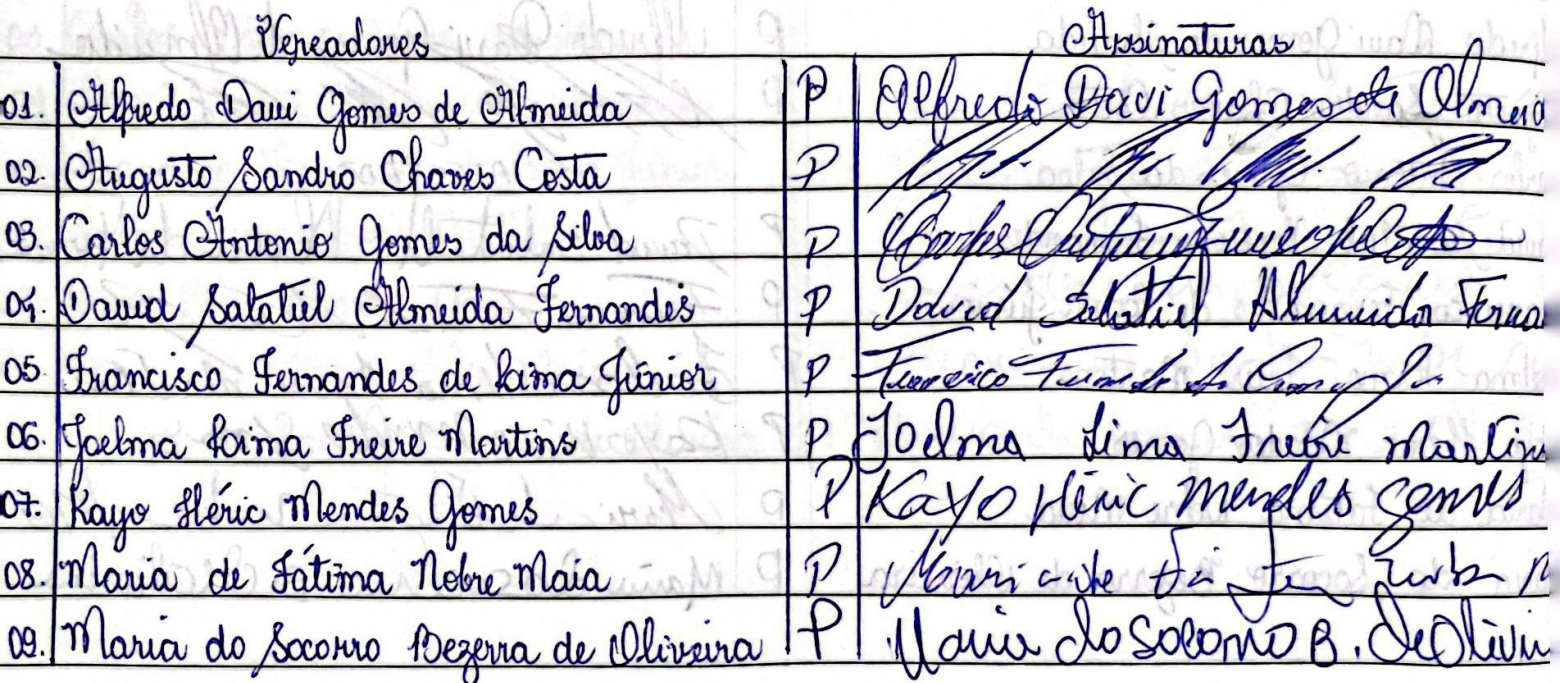 Vereadores Assinaturas
01. Alfredo Davi Gomes de Almeida P Alfredo Davi Gomes de Almeid
02. Augusto Sandro Chaves Costa P
03. Carlos Antonio Gomes da Silva P Carlos
04. David Salatiel Almeida Fernandes P David Salatiel Almeida Ferna
05. Francisco Fernandes de Lima Júnior P Francisco
06. Joelma Lima Freire Martins P Joelma Lima Freire Martins
07. Kayo Héric Mendes Gomes P Kayo Héric Mendes Gomes
08. Maria de Fátima Nobre Maia P Maria de
09. Maria do Socorro Bezerra de Oliveira P Maria do Socorro B. de Olivei